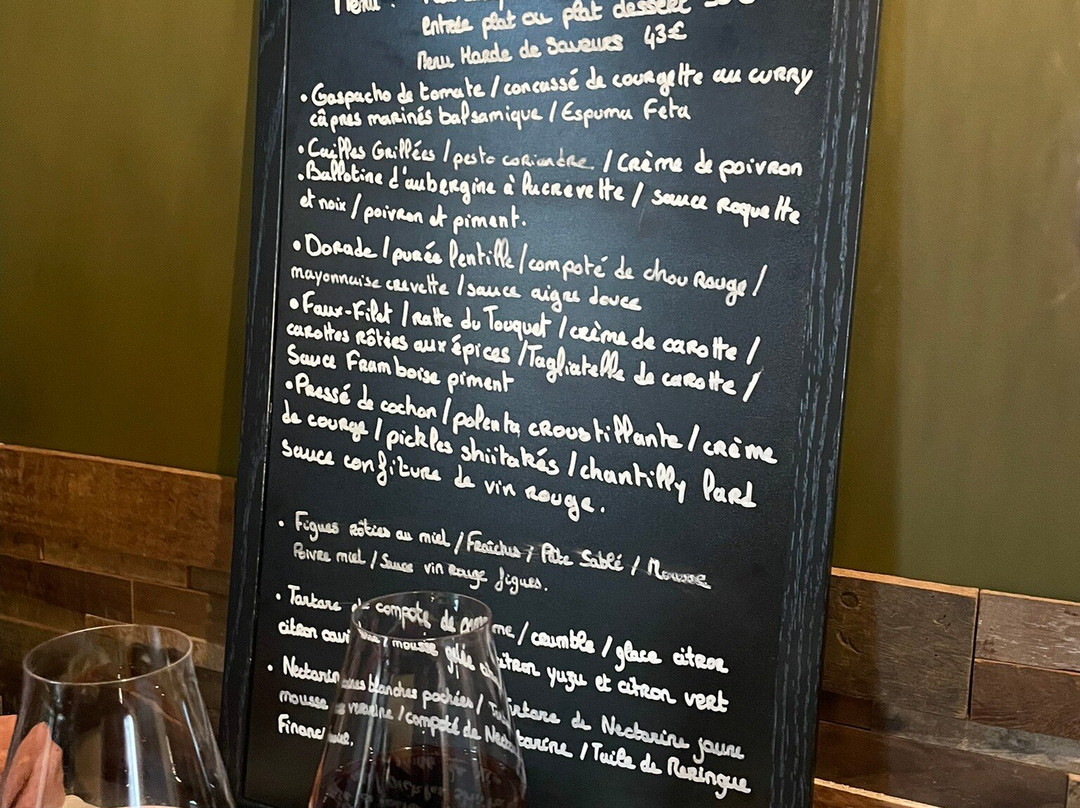 Menu :
Entrée plat ou plat dessert
Menu Harde de Saveurs 43€
• Gaspacho de tomate / concassé de courgette au curry
câpres marinés balsamique / Espuma Feta
• Cailles Grillées / pesto coriandre / Crème de poivron
• Ballotine d'aubergine à la crevette / sauce roquette
et noix / poivron et piment.
• Dorade / purée lentille / compoté de chou Rouge /
mayonnaise crevette / sauce aigre douce
• Faux-Filet / ratte du Touquet / crème de carotte /
carottes rôties aux épices / Tagliatelle de carotte /
Sauce Framboise piment
• Pressé de cochon / polenta croustillante / crème
de courge / pickles shiitakés / chantilly lard
sauce confiture de vin rouge.
• Figues rôties au miel / Fraîches / Pâte Sablé / Mousse
Poivre miel / Sauce vin Rouge figues.
• Tartare compote de / crumble / glace citron
citron cavi mousse gelée citron yuzu et citron vert
• Nectarines blanches pochées / Tartare de Nectarine jaune
mousse verveine / compoté de Nectarine / Tuile de Meringue
Financ miel.